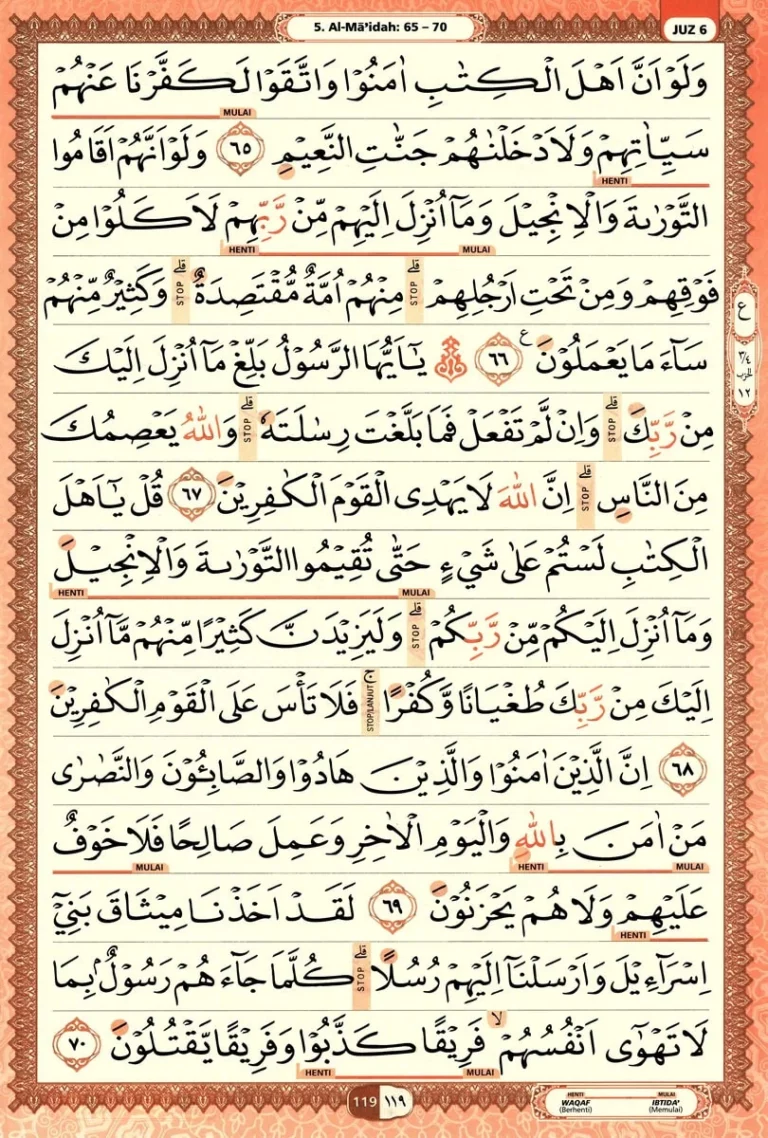 5. Al-Mā’idah: 65 – 70
JUZ 6
وَلَوْ اَنَّ اَهْلَ الْكِتٰبِ اٰمَنُوْا وَاتَّقَوْا لَكَفَّرْنَا عَنْهُمْ
MULAI
سَيِّاٰتِهِمْ وَلَاَدْخَلْنٰهُمْ جَنّٰتِ النَّعِيْمِ ٦٥ وَلَوْ اَنَّهُمْ اَقَامُوا
HENTI
التَّوْرٰىةَ وَالْاِنْجِيْلَ وَمَآ اُنْزِلَ اِلَيْهِمْ مِّنْ رَّبِّهِمْ لَاَكَلُوْا مِنْ
MULAI HENTI
فَوْقِهِمْ وَمِنْ تَحْتِ اَرْجُلِهِمْ ۗ STOP مِنْهُمْ اُمَّةٌ مُّقْتَصِدَةٌ ۗ STOP وَكَثِيْرٌ مِّنْهُمْ
سَآءَ مَا يَعْمَلُوْنَ ع ٦٦ يٰٓاَيُّهَا الرَّسُوْلُ بَلِّغْ مَآ اُنْزِلَ اِلَيْكَ
مِنْ رَّبِّكَ ۗ STOP وَاِنْ لَّمْ تَفْعَلْ فَمَا بَلَّغْتَ رِسٰلَتَهٗ ۗ STOP وَاللّٰهُ يَعْصِمُكَ
مِنَ النَّاسِ ۗ STOP اِنَّ اللّٰهَ لَا يَهْدِى الْقَوْمَ الْكٰفِرِيْنَ ٦٧ قُلْ يٰٓاَهْلَ
الْكِتٰبِ لَسْتُمْ عَلٰى شَيْءٍ حَتّٰى تُقِيْمُوا التَّوْرٰىةَ وَالْاِنْجِيْلَ
MULAI HENTI
وَمَآ اُنْزِلَ اِلَيْكُمْ مِّنْ رَّبِّكُمْ ۗ STOP وَلَيَزِيْدَنَّ كَثِيْرًا مِّنْهُمْ مَّآ اُنْزِلَ
اِلَيْكَ مِنْ رَّبِّكَ طُغْيَانًا وَّكُفْرًا ۚ STOP/LANJUT فَلَا تَأْسَ عَلَى الْقَوْمِ الْكٰفِرِيْنَ
٦٨ اِنَّ الَّذِيْنَ اٰمَنُوْا وَالَّذِيْنَ هَادُوْا وَالصَّابِـُٔوْنَ وَالنَّصٰرٰى
مَنْ اٰمَنَ بِاللّٰهِ وَالْيَوْمِ الْاٰخِرِ وَعَمِلَ صَالِحًا فَلَا خَوْفٌ
MULAI HENTI MULAI
عَلَيْهِمْ وَلَا هُمْ يَحْزَنُوْنَ ٦٩ لَقَدْ اَخَذْنَا مِيْثَاقَ بَنِيْٓ
HENTI
اِسْرَآءِيْلَ وَاَرْسَلْنَآ اِلَيْهِمْ رُسُلًا ۗ STOP كُلَّمَا جَآءَهُمْ رَسُوْلٌ ۢبِمَا
لَا تَهْوٰٓى اَنْفُسُهُمْ ۙ فَرِيْقًا كَذَّبُوْا وَفَرِيْقًا يَّقْتُلُوْنَ ٧٠
MULAI HENTI
ع
٣/٤
الحزب
١٢
119 ١١٩
HENTI MULAI
WAQAF IBTIDA'
(Berhenti) (Memulai)